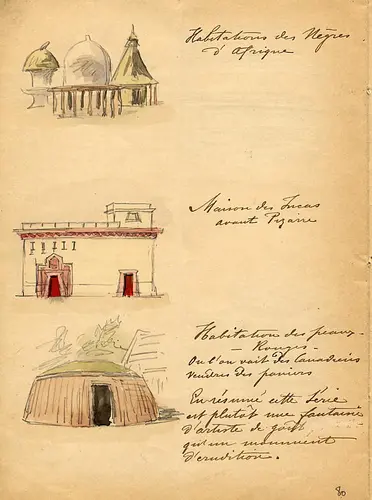 Habitations des Nègres
d'Afrique
Maison des Incas
avant Pizarre
Habitation des peaux-
Rouges -
Où l'on voit des Canadiens
vendres des paniers
En résumé cette Série
est plutot une fantaisie
d'artiste de goût
qu'un monument
d'erudition.
80